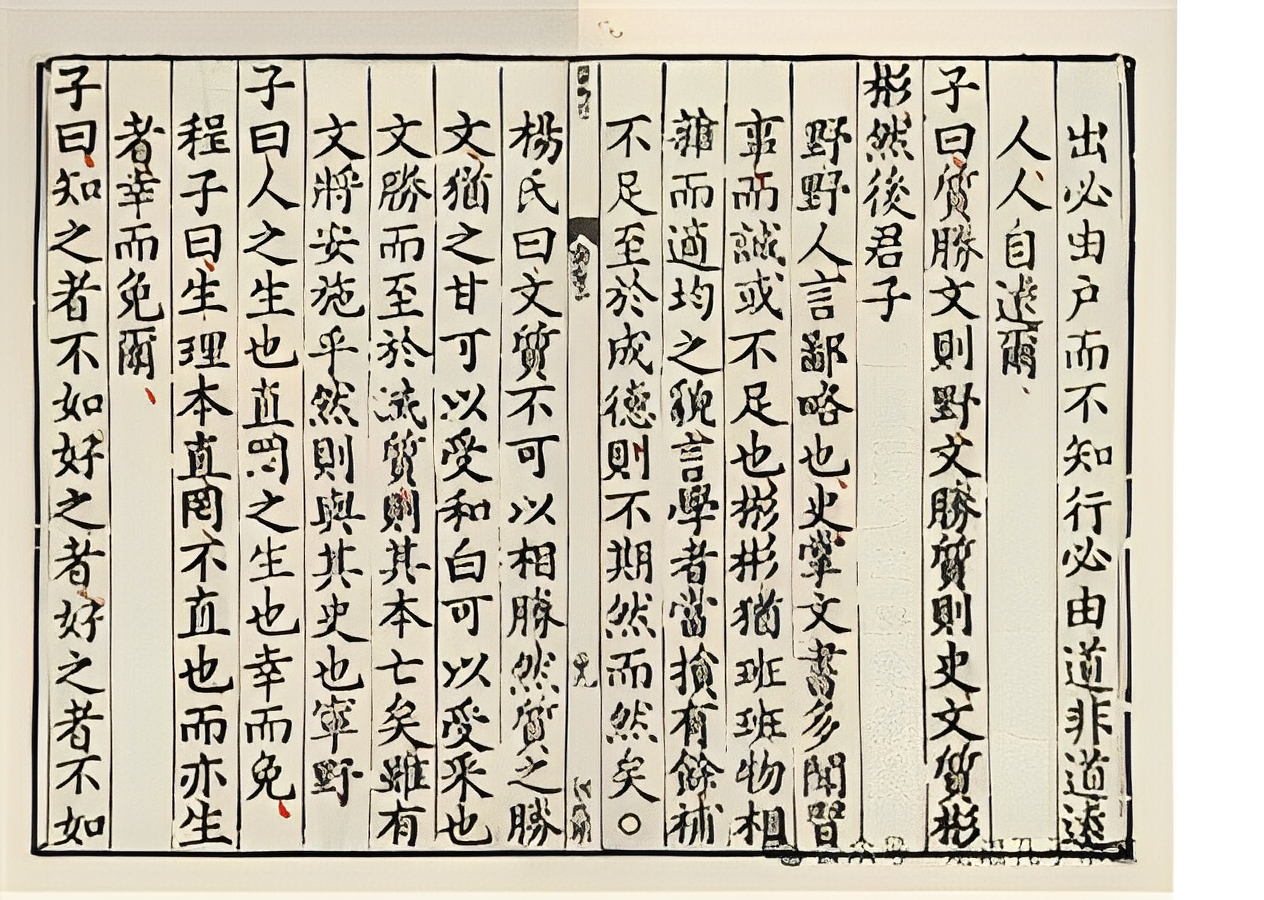 出必由户而不知行必由道非道遠
人人自遠爾
子曰質勝文則野文勝質則史文質彬
彬然後君子
野野人言鄙略也史掌文書多聞習
事而誠或不足也彬彬猶班班物相
雜而適均之貌言學者當損有餘補
不足至於成德則不期然而然矣○
楊氏曰文質不可以相勝然質之勝
文猶之甘可以受和白可以受采也
文勝而至於滅質則其本亡矣雖有
文將安施乎然則與其史也寧野
子曰人之生也直罔之生也幸而免
程子曰生理本直罔不直也而亦生
者幸而免爾
子曰知之者不如好之者好之者不如